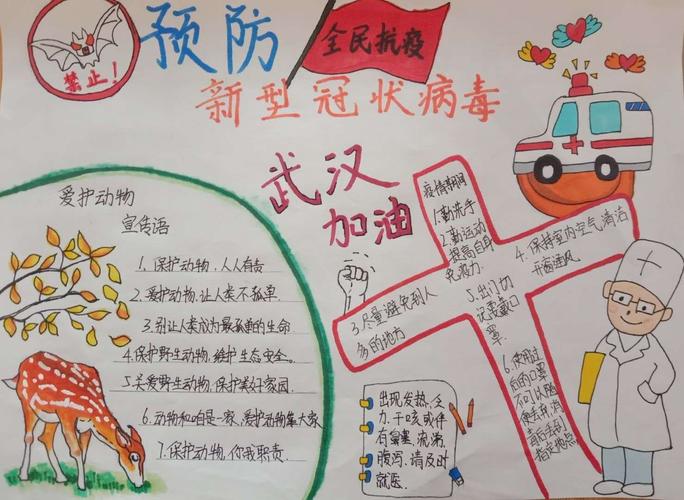 禁止！
预防
全民抗疫
新型冠状病毒
武汉
加油
爱护动物
宣传语
1. 保护动物，人人有责
2. 爱护动物，让人类不孤单.
3. 别让人类成为最孤单的生命
4. 保护野生动物，维护生态安全。
5. 关爱野生动物，保护美好家园.
6. 动物和咱是一家，爱护动物靠大家
7. 保护动物，你我职责.
疫情期间
1. 勤洗手
2. 勤运动
提高自身
免疫力.
3. 尽量避免到人
多的地方
4. 保持室内空气清洁
开窗通风
5. 出门切
记要戴口
罩.
6. 使用过
后的口罩
不可以随
便丢弃，消
毒后丢到
指定地点
出现发热，乏
力，干咳或伴
有鼻塞，流涕，
腹泻，请及时
就医.